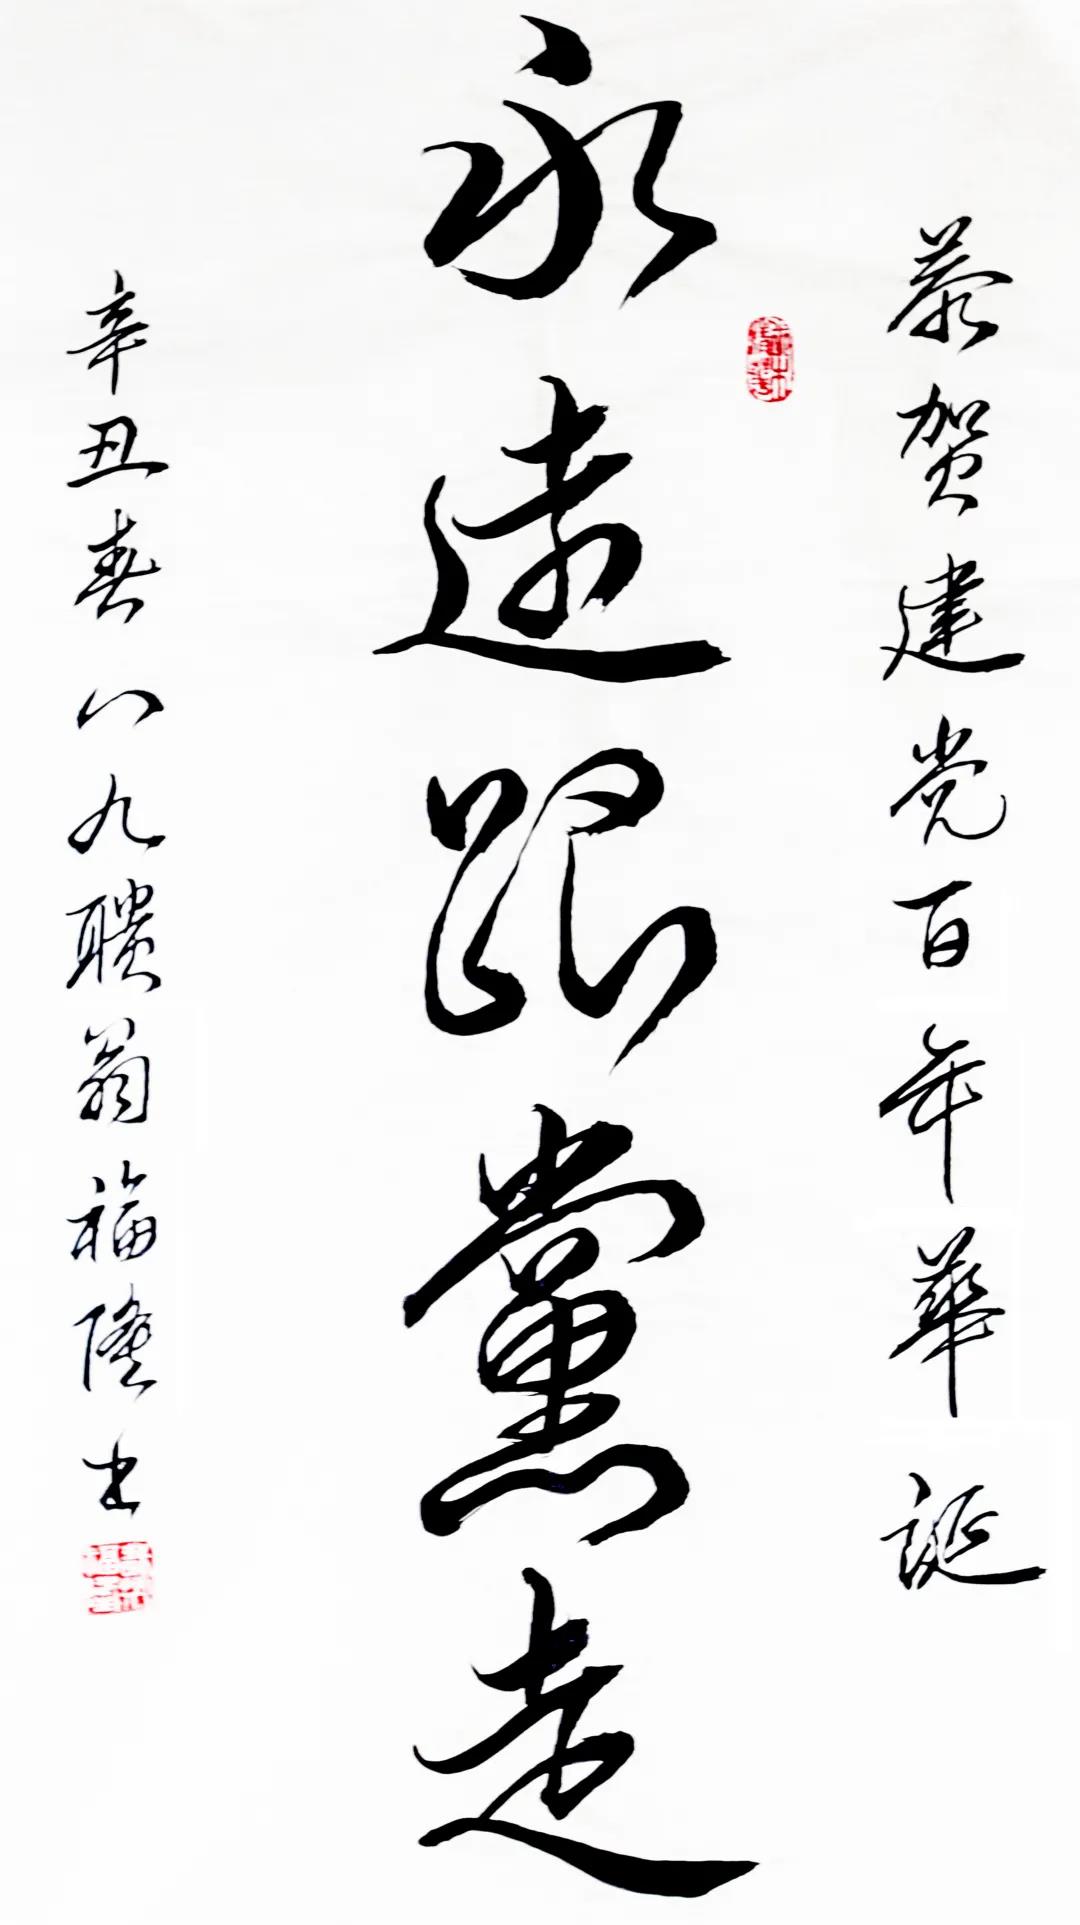 恭贺建党百年華誕
永遠跟黨走
辛丑春八九聩翁福隆书